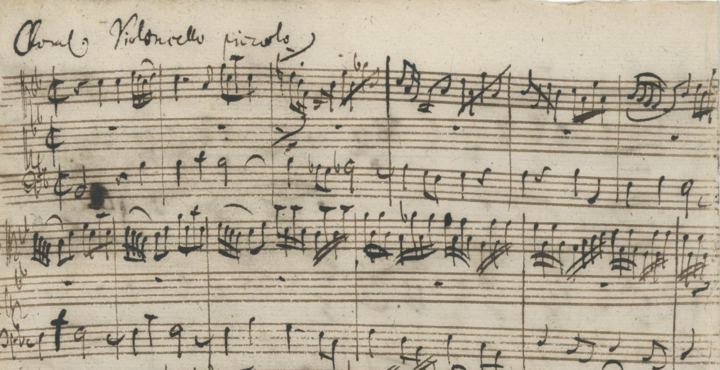 Choral. Violoncello piccolo